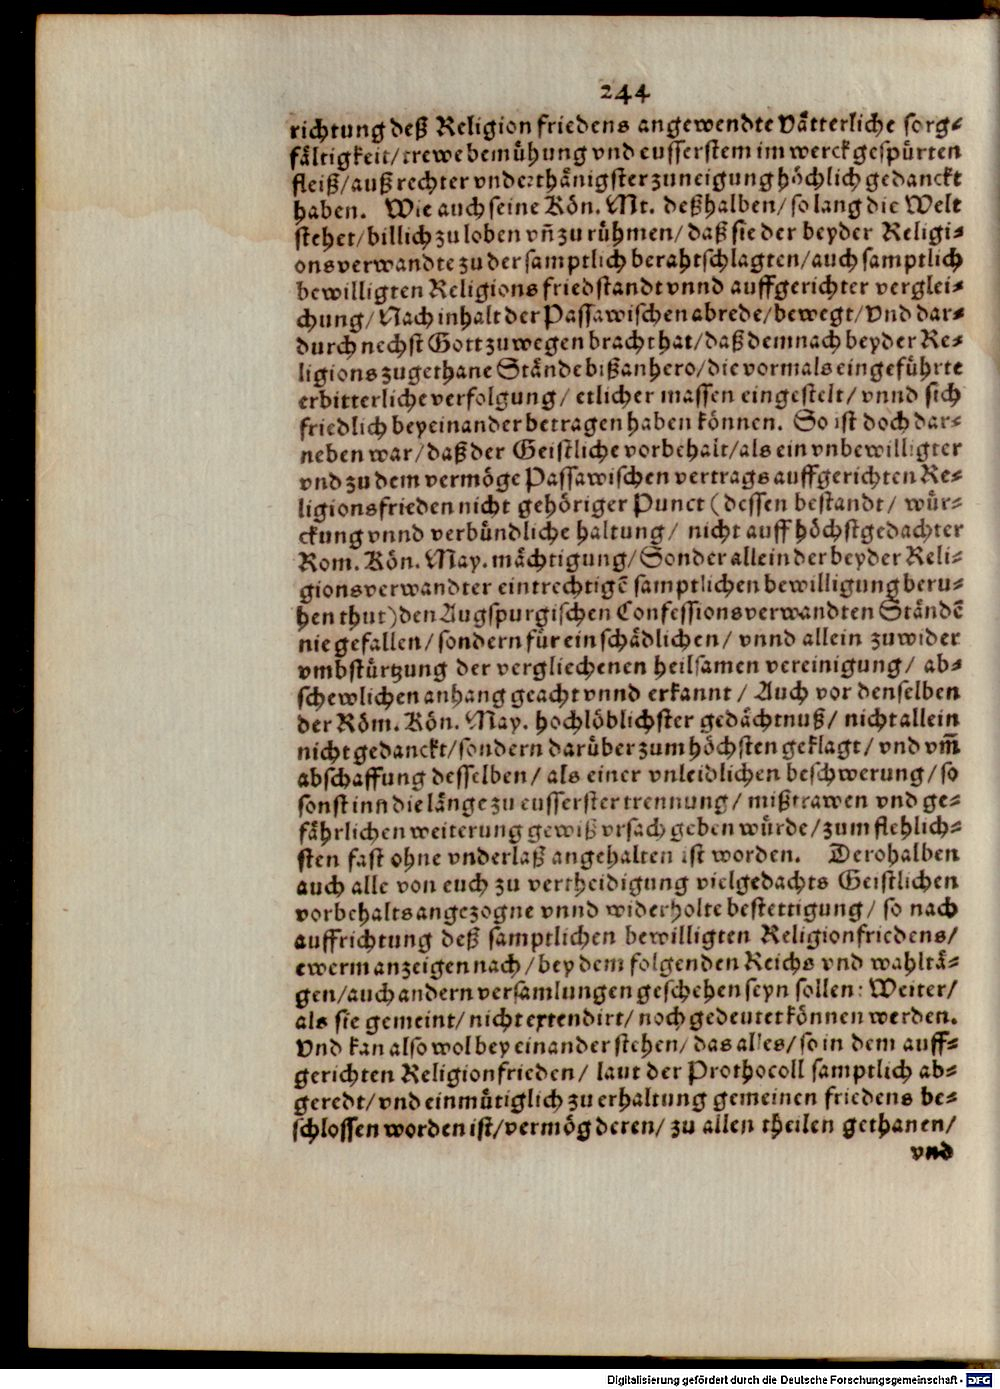 244
richtung deß Religion friedens angewendte Vätterliche sorg-
fältigkeit/ trewe bemühung vnd eusserstem im werck gespürten
fleiß/ auß rechter vnderthänigster zuneigung höchlich gedanckt
haben. Wie auch seine Kön. Mt. deßhalben/ so lang die Welt
stehet/ billich zu loben vñ zu rühmen/ daß sie der beyder Religi-
onsverwandte zu der samptlich berahtschlagten/ auch samptlich
bewilligten Religions friedstandt vnnd auffgerichter verglei-
chung/ Nach inhalt der Passawischen abrede/ bewegt/ Vnd dar-
durch nechst Gott zuwegen bracht hat/ daß demnach beyder Re-
ligion zugethane Stände biß anhero/ die vormals eingeführte
erbitterliche verfolgung/ etlicher massen eingestelt/ vnnd sich
friedlich beyeinander betragen haben können. So ist doch dar-
neben war/ daß der Geistliche vorbehalt/ als ein vnbewilligter
vnd zu dem vermöge Passawischen vertrags auffgerichten Re-
ligionsfrieden nicht gehöriger Punct (dessen bestandt/ wür-
ckung vnnd verbündliche haltung/ nicht auff höchstgedachter
Rom. Kön. May. mächtigung/ Sonder allein der beyder Reli-
gionsverwandter eintrechtigē samptlichen bewilligung beru-
hen thut) den Augspurgischen Confessionsverwandten Ständē
nie gefallen/ sondern für ein schädlichen/ vnnd allein zuwider
vmbstürtzung der vergliechenen heilsamen vereinigung/ ab-
schewlichen anhang geacht vnnd erkannt/ Auch vor denselben
der Röm. Kön. May. hochlöblichster gedächtnuß/ nicht allein
nicht gedanckt/ sondern darüber zum höchsten geklagt/ vnd vm̄
abschaffung desselben/ als einer vnleidlichen beschwerung/ so
sonst inn die länge zu eusserster trennung/ mißtrawen vnd ge-
fährlichen weiterung gewiß vrsach geben würde/ zum flehlich-
sten fast ohne vnderlaß angehalten ist worden. Derohalben
auch alle von euch zu vertheidigung vielgedachts Geistlichen
vorbehalts angezogne vnnd widerholte bestettigung/ so nach
auffrichtung deß samptlichen bewilligten Religionfriedens/
ewerm anzeigen nach/ bey dem folgenden Reichs vnd wahltä-
gen/ auch andern versamlungen geschehen seyn sollen: Weiter/
als sie gemeint/ nicht extendirt/ noch gedeutet können werden.
Vnd kan also wol bey einander stehen/ das alles/ so in dem auff-
gerichten Religionfrieden/ laut der Prothocoll samptlich ab-
geredt/ vnd einmütiglich zu erhaltung gemeinen friedens be-
schlossen worden ist/ vermög deren/ zu allen theilen gethanen/
vnd
Digitalisierung gefördert durch die Deutsche Forschungsgemeinschaft - DFG